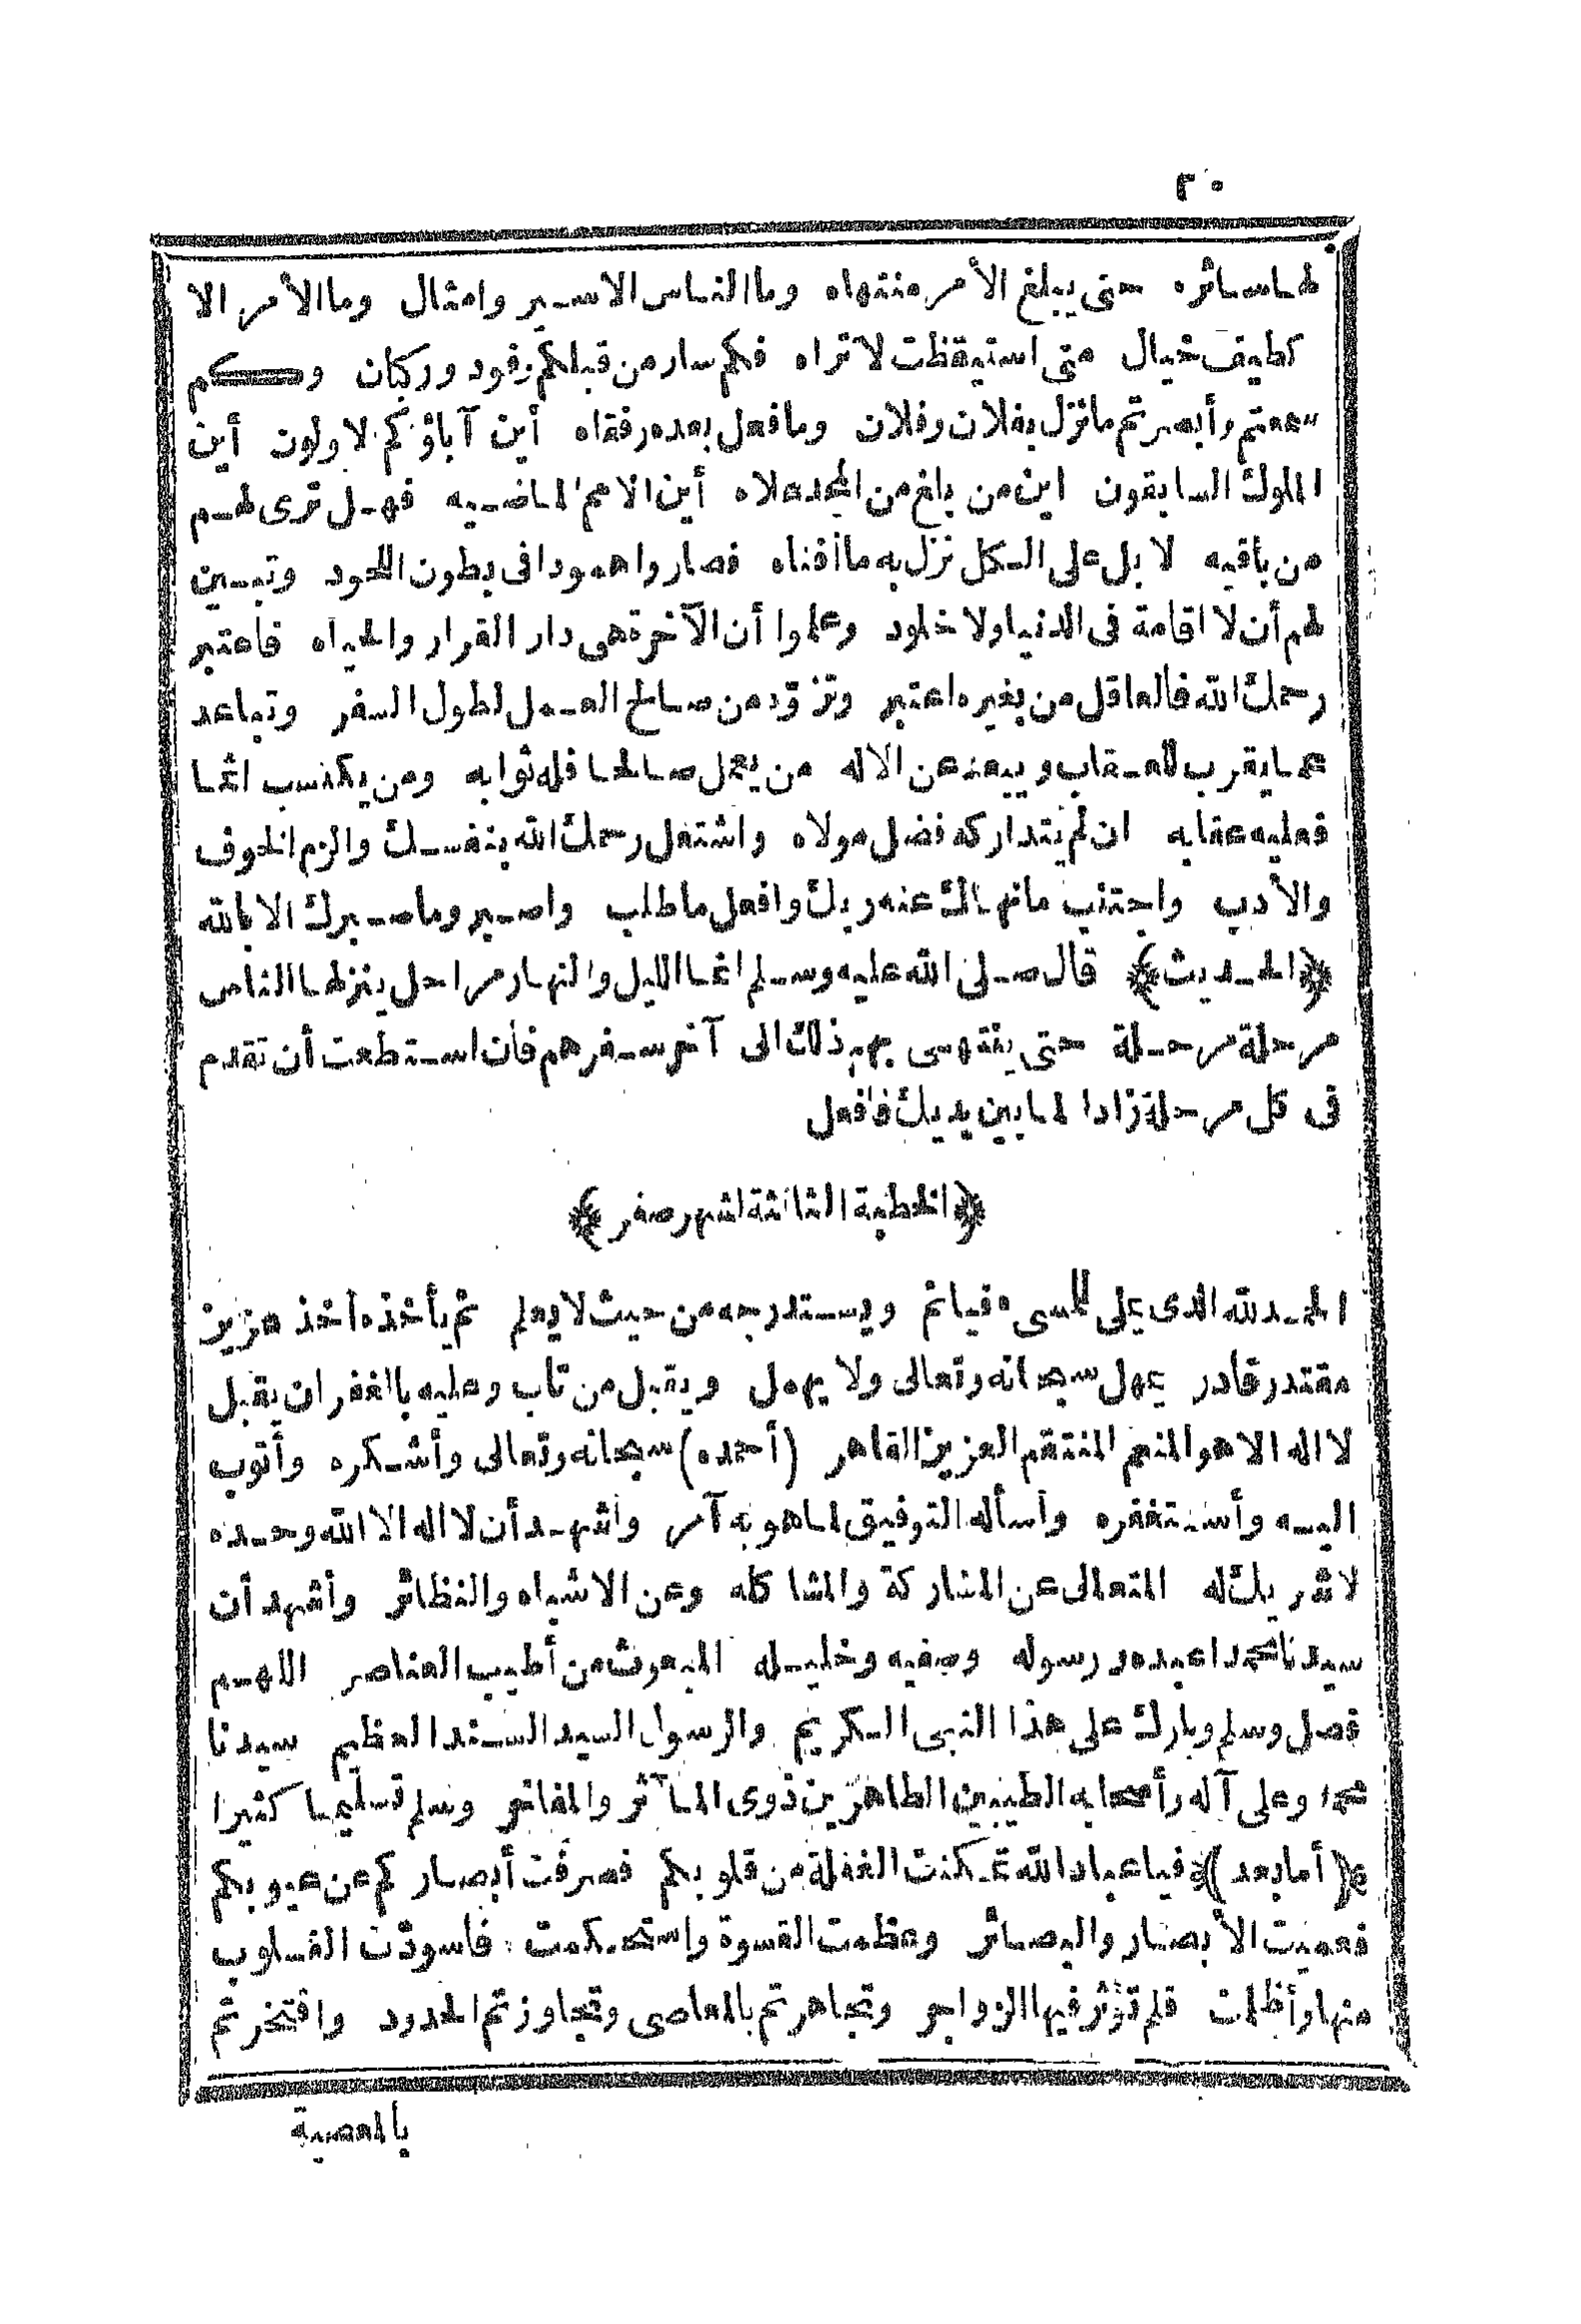 ٢٠
لها سائره حتى يبلغ الأمر منتهاه وما الناس الا سير وامثال وما الأمر الا
كطيف خيال متى استيقظت لا تراه فكم سار من قبلكم وفود وركبان وكم
سمعتم وأبصرتم ما نزل بفلان وفلان وما فعل بعده رفقاه أين آباؤكم الاولون أين
الملوك السابقون اين من بلغ من المجد علاه أين الامم الماضيه فهل ترى لهم
من باقيه لا بل على الكل نزل به ما أفناه فصاروا همودا فى بطون اللحود وتبين
لهم أن لا اقامة فى الدنيا ولا خلود وعلموا أن الآخرة هى دار القرار والحياه فاعتبر
رحمك الله فالعاقل من بغيره اعتبر وتزوّد من صالح العمل لطول السفر وتباعد
عما يقرب للعقاب ويبعد عن الاله من يعمل صالحا فله ثوابه ومن يكتسب اثما
فعليه عقابه ان لم يتداركه فضل مولاه واشتغل رحمك الله بنفسك والزم الخوف
والأدب واجتنب ما نهاك عنه ربك وافعل ما طلب واصبر وما صبرك الا بالله
﴿الحديث﴾ قال صلى الله عليه وسلم انما الليل والنهار مراحل ينزلها الناس
مرحلة مرحلة حتى ينتهى بهم ذلك الى آخر سفرهم فان استطعت أن تقدم
فى كل مرحلة زادا لما بين يديك فافعل
﴿الخطبة الثالثة لشهر صفر﴾
الحمد لله الذى يملى للمسىء فيأثم ويستدرجه من حيث لا يعلم ثم يأخذه أخذ عزيز
مقتدر قادر يمهل سبحانه وتعالى ولا يهمل ويقبل من تاب وعليه بالغفران يقبل
لا اله الا هو المنعم المنتقم العزيز القاهر (أحمده) سبحانه وتعالى وأشكره وأتوب
اليه وأستغفره وأسأله التوفيق لما هو به آمر وأشهد أن لا اله الا الله وحده
لا شريك له المتعالى عن المشاركة والمشاكله وعن الاشباه والنظائر وأشهد أن
سيدنا محمدا عبده ورسوله وصفيه وخليله المبعوث من أطيب العناصر اللهم
فصل وسلم وبارك على هذا النبى الكريم والرسول السيد السند العظيم سيدنا
محمد وعلى آله وأصحابه الطيبين الطاهرين ذوى المآثر والمفاخر وسلم تسليما كثيرا
﴿أما بعد﴾ فيا عباد الله تمكنت الغفلة من قلوبكم فصرفت أبصاركم عن عيوبكم
فعميت الأبصار والبصائر وعظمت القسوة واستحكمت فاسودّت القلوب
منها وأظلمت فلم تؤثر فيها الزواجر وتجاهرتم بالمعاصى وتجاوزتم الحدود وافتخرتم
بالمعصية